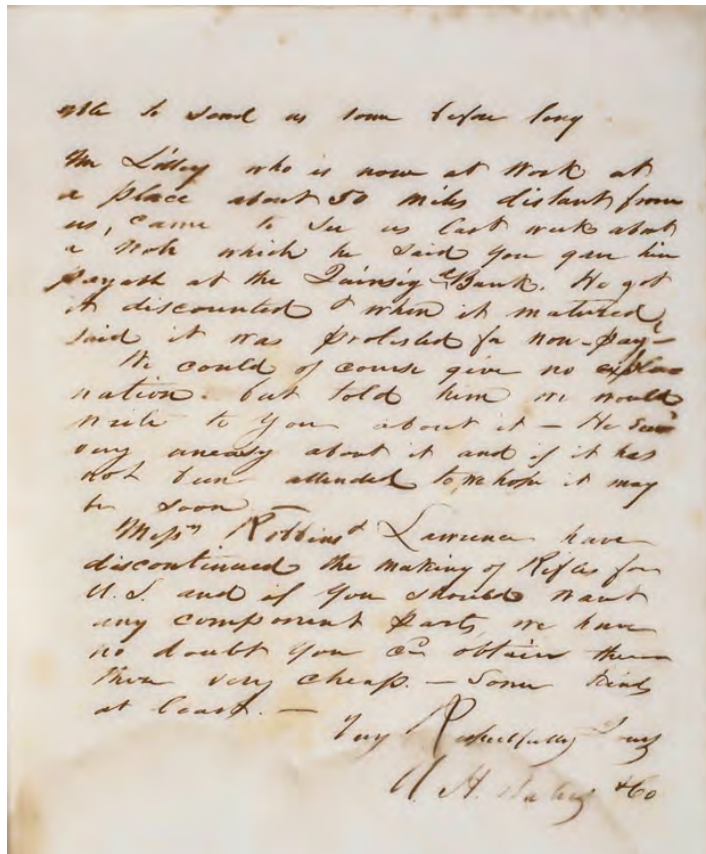 able to send us some before long
Mr Lilley who is now at work at
a place about 50 miles distant from
us, came to see us last week about
a note which he said you gave him
payable at the Bank. He got
it discounted & when it matured
said it was protested for non-payt
We could of course give no expla-
nation. but told him we would
write to you about it - He
very uneasy about it and if it has
not been attended to, we hope it may
be soon -
Messrs Robbins & Lawrence have
discontinued the making of Rifles for
U.S. and if you should want
any component parts, we have
no doubt you can obtain them
there very cheap. - Some kinds
at least. -
Very Respectfully Yours
H. & Co